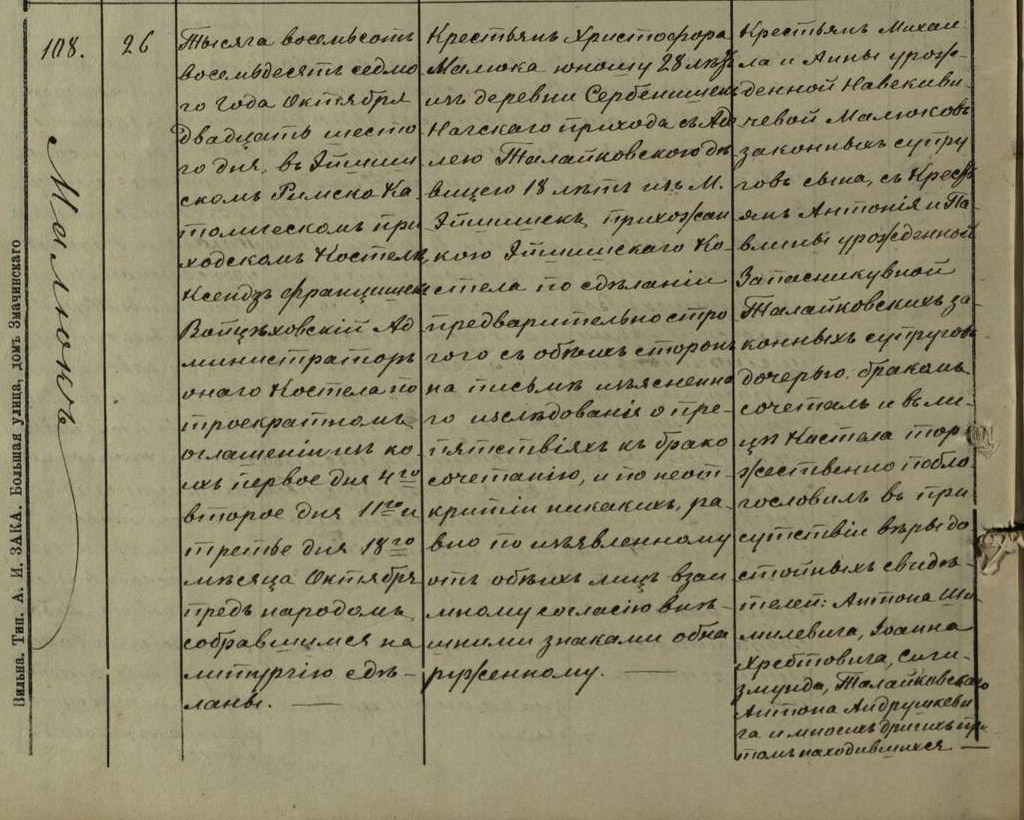 108.
26
Малюкъ
Тысяча восемьсотъ
восемьдесятъ седмо
го года Октября
двадцать шесто
го дня, въ Эйшиш
скомъ Римско Ка
толическомъ при
ходскомъ Костелѣ,
Ксендзъ Францишекъ
Войцѣховскій Ад
министраторъ
онаго Костела по
троекратномъ
оглашеніи изъ ко
ихъ первое дня 4го
второе дня 11го и
третье дня 18го
мѣсяца Октября
предъ народомъ
собравшимся на
литургію сдѣ-
ланы.
Крестьянъ Христофора
Малюка юношу 28 лѣтъ
изъ деревни
Начскаго прихода съ Аде
лею Талайковскою дѣ
вицею 18 лѣтъ изъ М.
Эйшишекъ, прихожан
кою Эйшишскаго Ко
стела по сдѣланіи
предварительно стро
гого съ обѣихъ сторонъ
на письмѣ изъясненна
го изслѣдованія о пре-
пятствіяхъ къ брако
сочетанію, и по неот-
крытіи никакихъ, ра-
вно по изъявленному
отъ обѣихъ лицъ взаи
мному согласію внѣ-
шними знаками обна
руженному.
Крестьянъ Михаи
ла и Анны урож-
денной
Малюковъ
законныхъ супру
говъ сына, съ Кресть
янъ Антонія и Па-
влины урожденной
Запасникувной
Талайковскихъ за-
конныхъ супруговъ
дочерью. бракомъ
сочеталъ и въ ли-
цѣ Костела тор
жественно побла
гословилъ въ при
сутствіи вѣры до
стойныхъ свидѣ-
телей: Антона Ши
милевича, Іоанна
Хребтовича, Сиги-
змунда, Талайковскаго
Антона Андрушкеви
ча и многихъ другихъ при
томъ находившихся.
Вильна. Тип. А. И. ЗАКА. Большая улица, домъ Змачинскаго